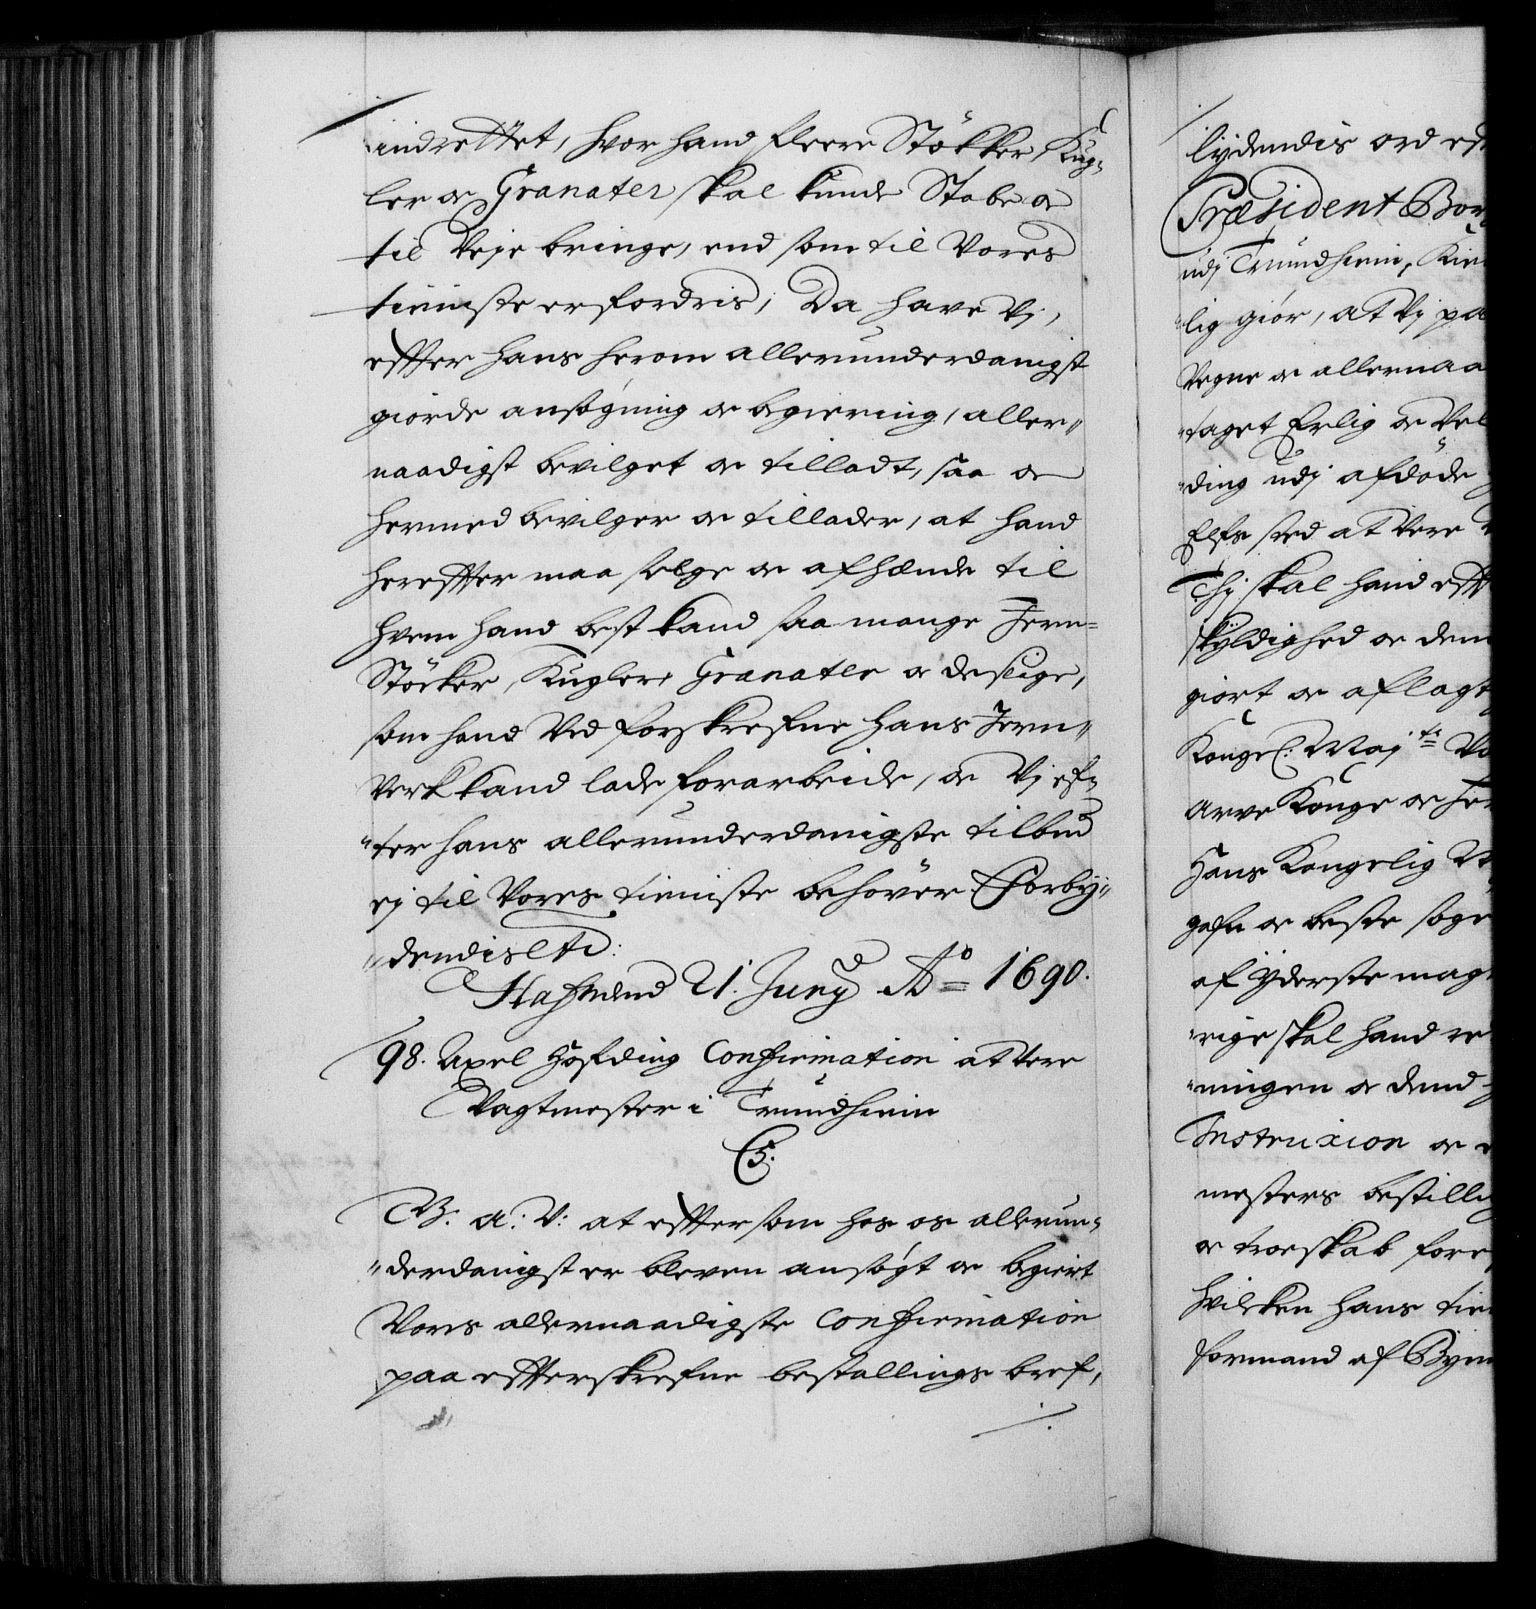 indrettet, hvor hand fleere Stökker, Kug-
ler oc Granater skal kunde Støbe oc
til Veje bringe, end som til Vores
tieniste erfordris, Da have Vj,
effter hans herom allerunderdanigst
giorde ansøgning oc begiering, aller-
naadigst bevilget oc tilladt, saa oc
hermed bevilger oc tillader, at hand
hereffter maa selge oc afhænde til
hvem hand best kand saa mange Jern-
Stöcker, Kugler, Granater oc deslige,
som hand Ved forskrefne hans Jern-
Verk kand lade forarbeide, oc Vj ef-
ter hans allerunderdanigste tilbud
ej til Vores tieniste behöver. Forby-
dendis etc:
Hafniæ d 21. Junij Ao 1690.
98. Axel Høfding Confirmation at vere
Vagtmester i Trundhiem
C5.
G. A. V: at effter som hos os allerun-
derdanigst er bleven ansøgt oc begiert
Vores allernaadigste Confirmation
paa effterskrefne bestallings bref,
lÿdendis ord eft
Præsident Bor
udj Trundhiem, Kien
lig giör, at Vj paa
Vegne oc allernaa
taget Erlig oc Vel
ding udj afdöde
Elfs sted at vere
Thj skal hand eft
skÿldighed oc dem
giort oc aflagt
Kongel: Mayts Vo
Arve Konge oc Her
Hans Kongelig M
gafn oc beste søge
af ÿderste mag
rige skal hand re
ningen oc dend
Instruxion oc
mesters bestilli
oc troeskab fore
hvilken hans tien
formand af Bÿen